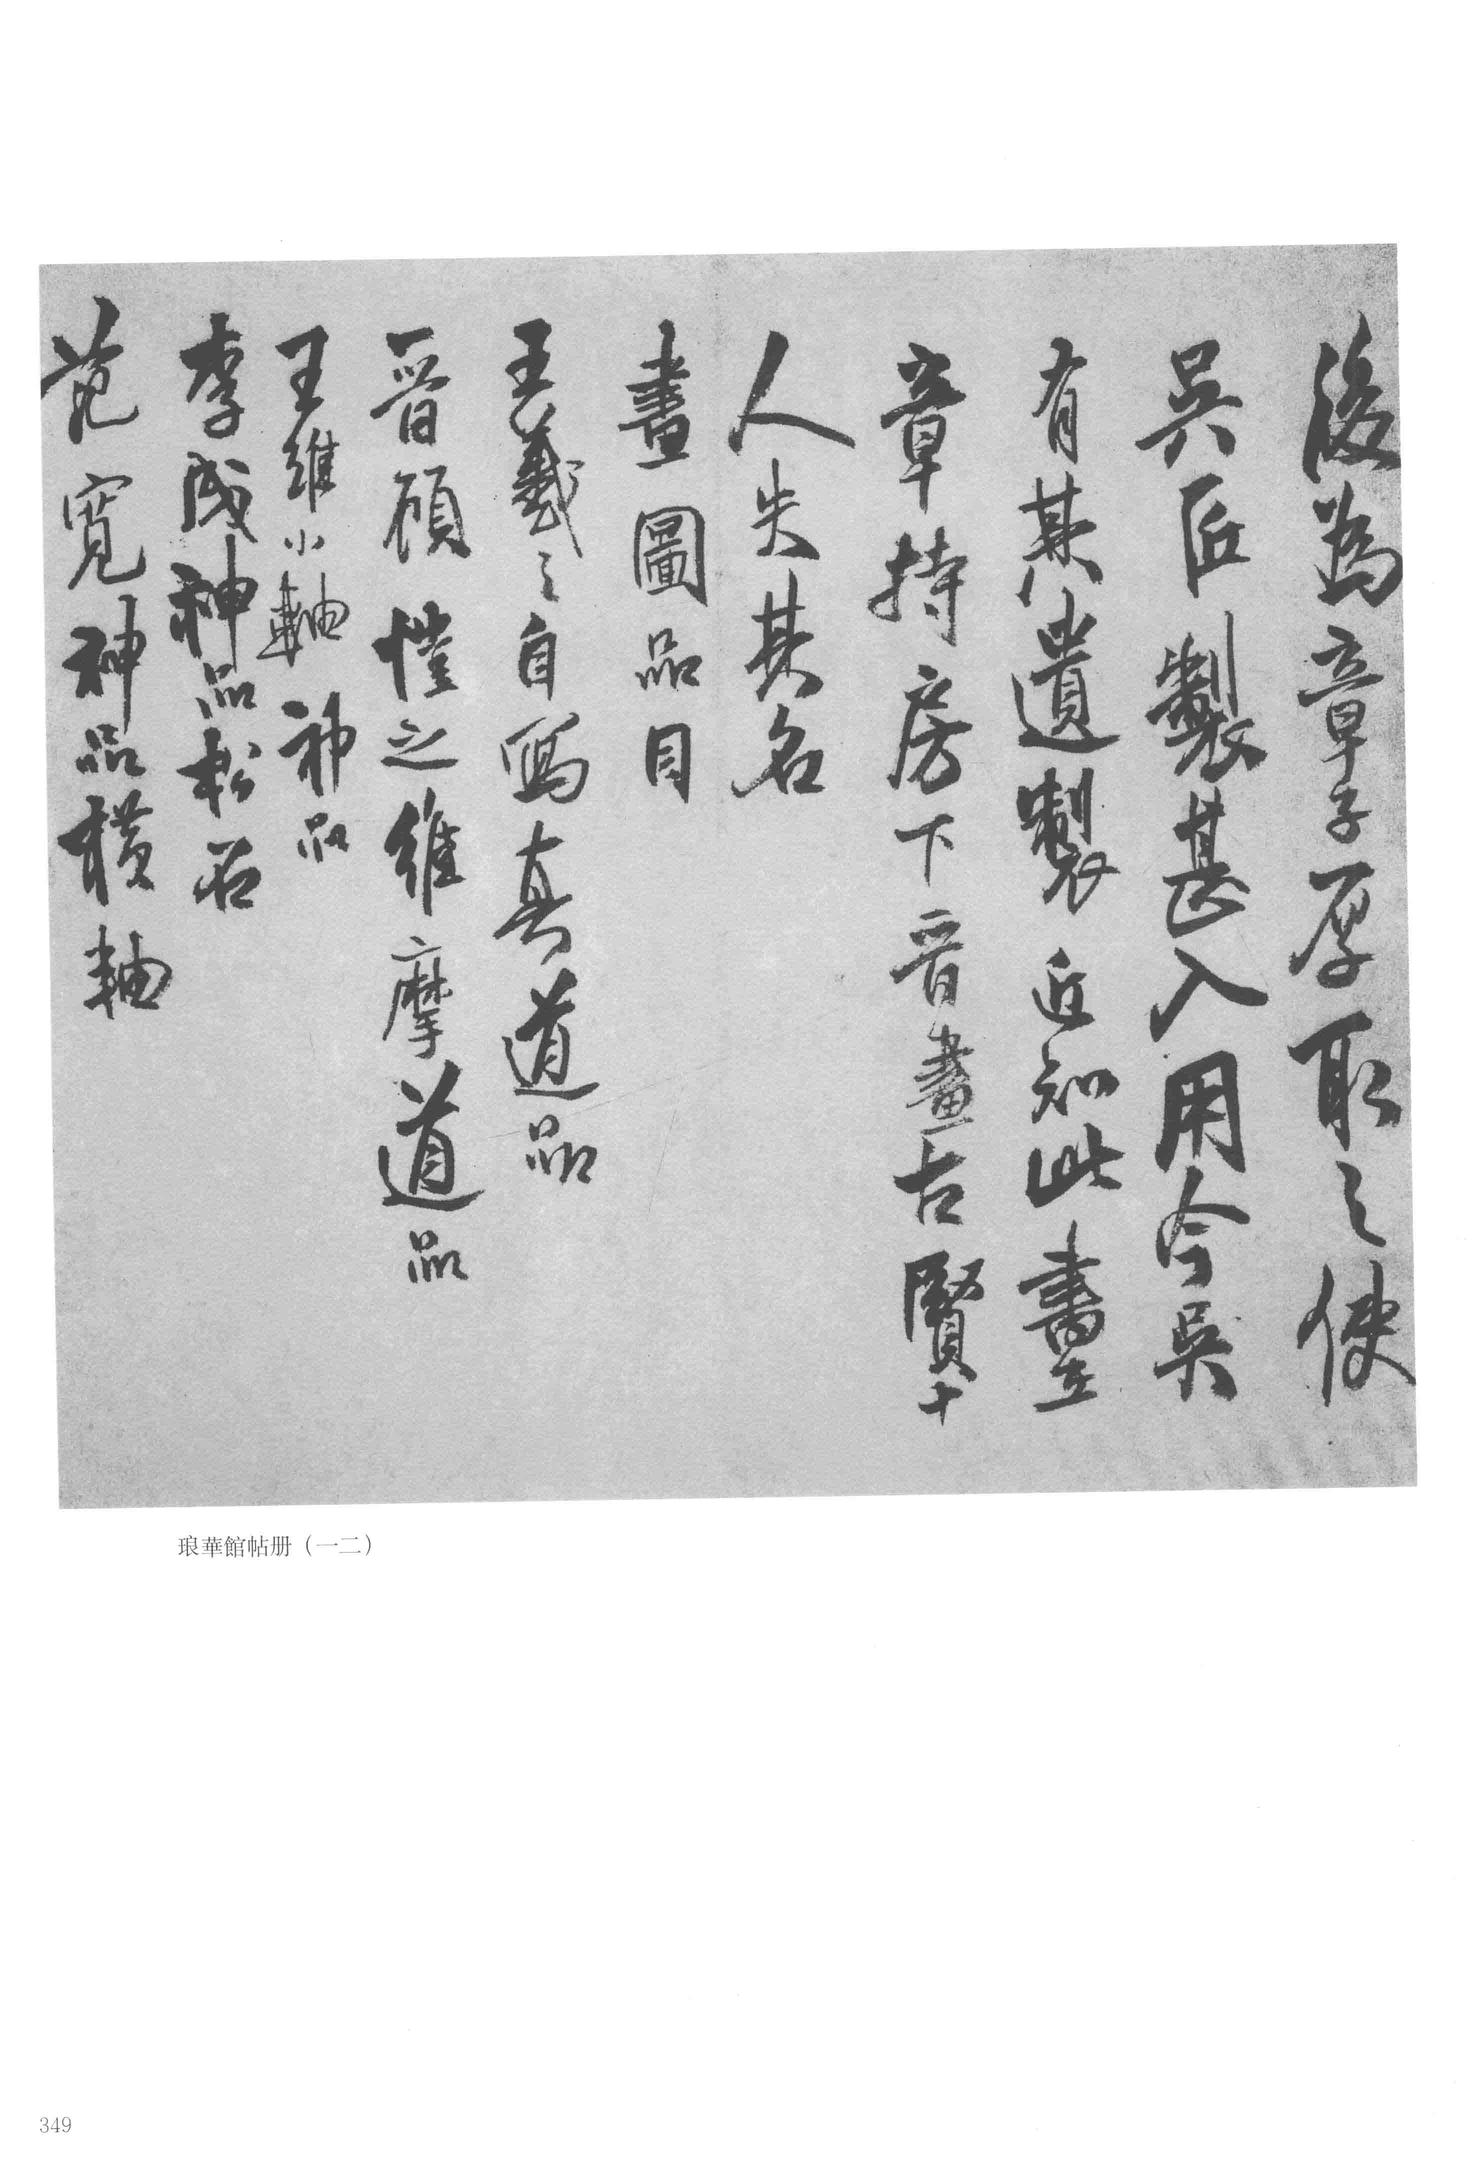 後為章子厚取之使
吳匠製甚入用今吳
有其遺製近知此書在
章持房下音畫古賢十
人失其名
畫圖品目
王羲之自寫真道品
晉顧愷之維摩道品
王維小軸神品
李成神品松石
范寬神品橫軸
琅華館帖册（一二）
349